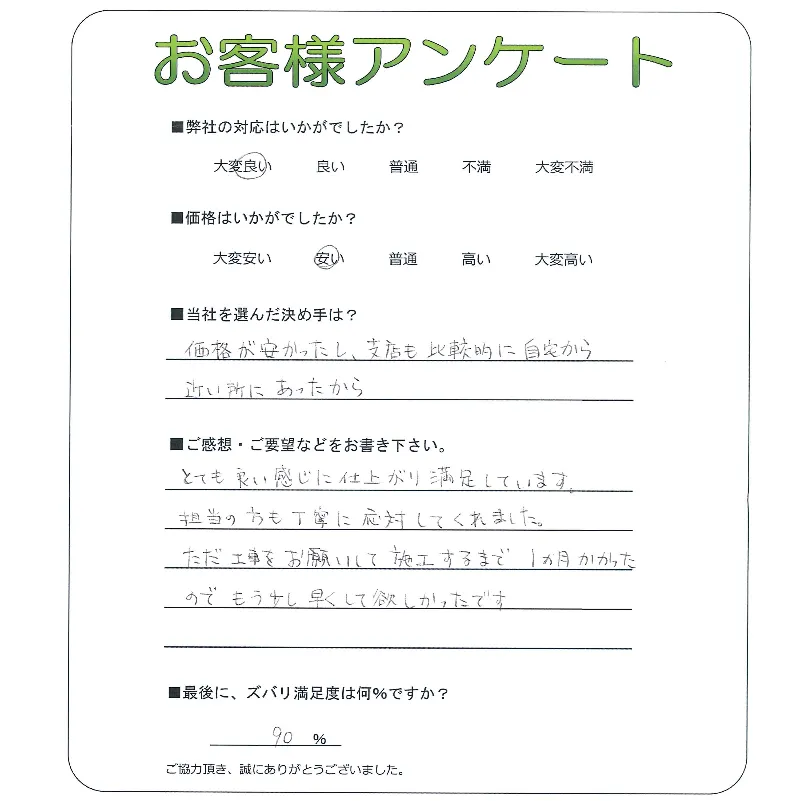 お客様アンケート
■弊社の対応はいかがでしたか？
大変良い 良い 普通 不満 大変不満
■価格はいかがでしたか？
大変安い 安い 普通 高い 大変高い
■当社を選んだ決め手は？
価格が安かったし、支店も比較的に自宅から
近い所にあったから
■ご感想・ご要望などをお書き下さい。
とても良い感じに仕上がり満足しています。
担当の方も丁寧に応対してくれました。
ただ工事をお願いして施工するまで1カ月かかった
のでもう少し早くして欲しかったです
■最後に、ズバリ満足度は何%ですか？
90 %
ご協力頂き、誠にありがとうございました。